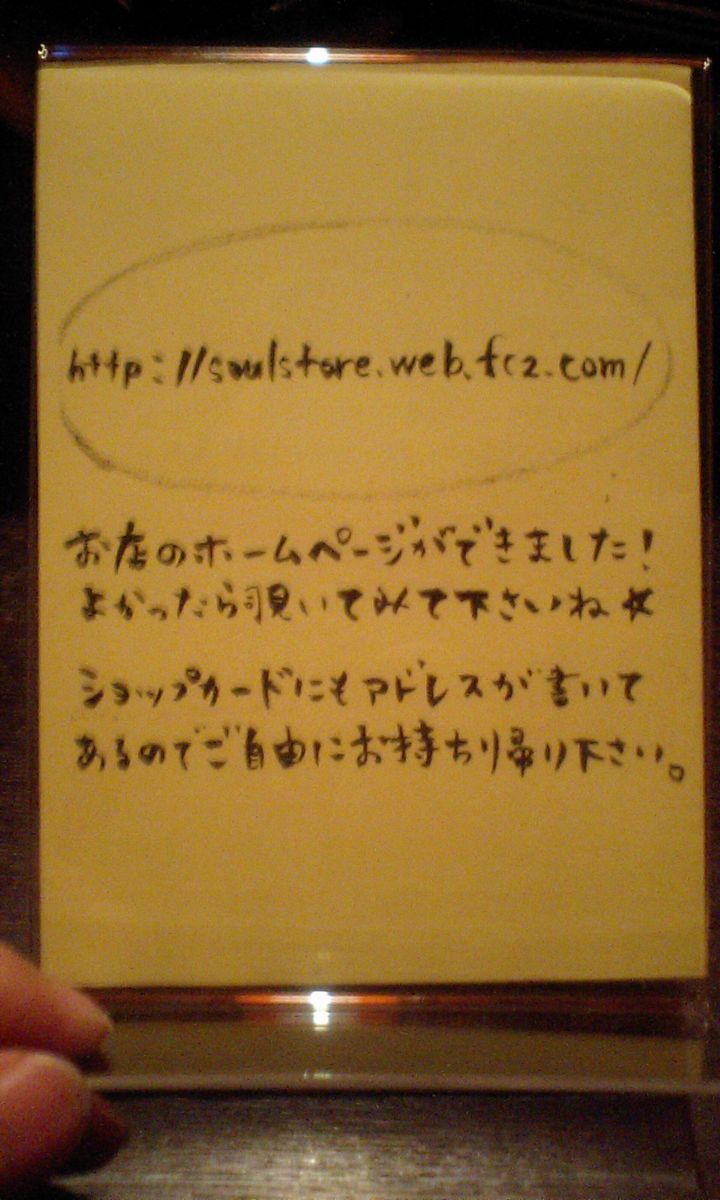 http://soulstore.web.fc2.com/
お店のホームページができました!
よかったら覗いてみて下さいね★
ショップカードにもアドレスが書いて
あるのでご自由にお持ち帰り下さい。